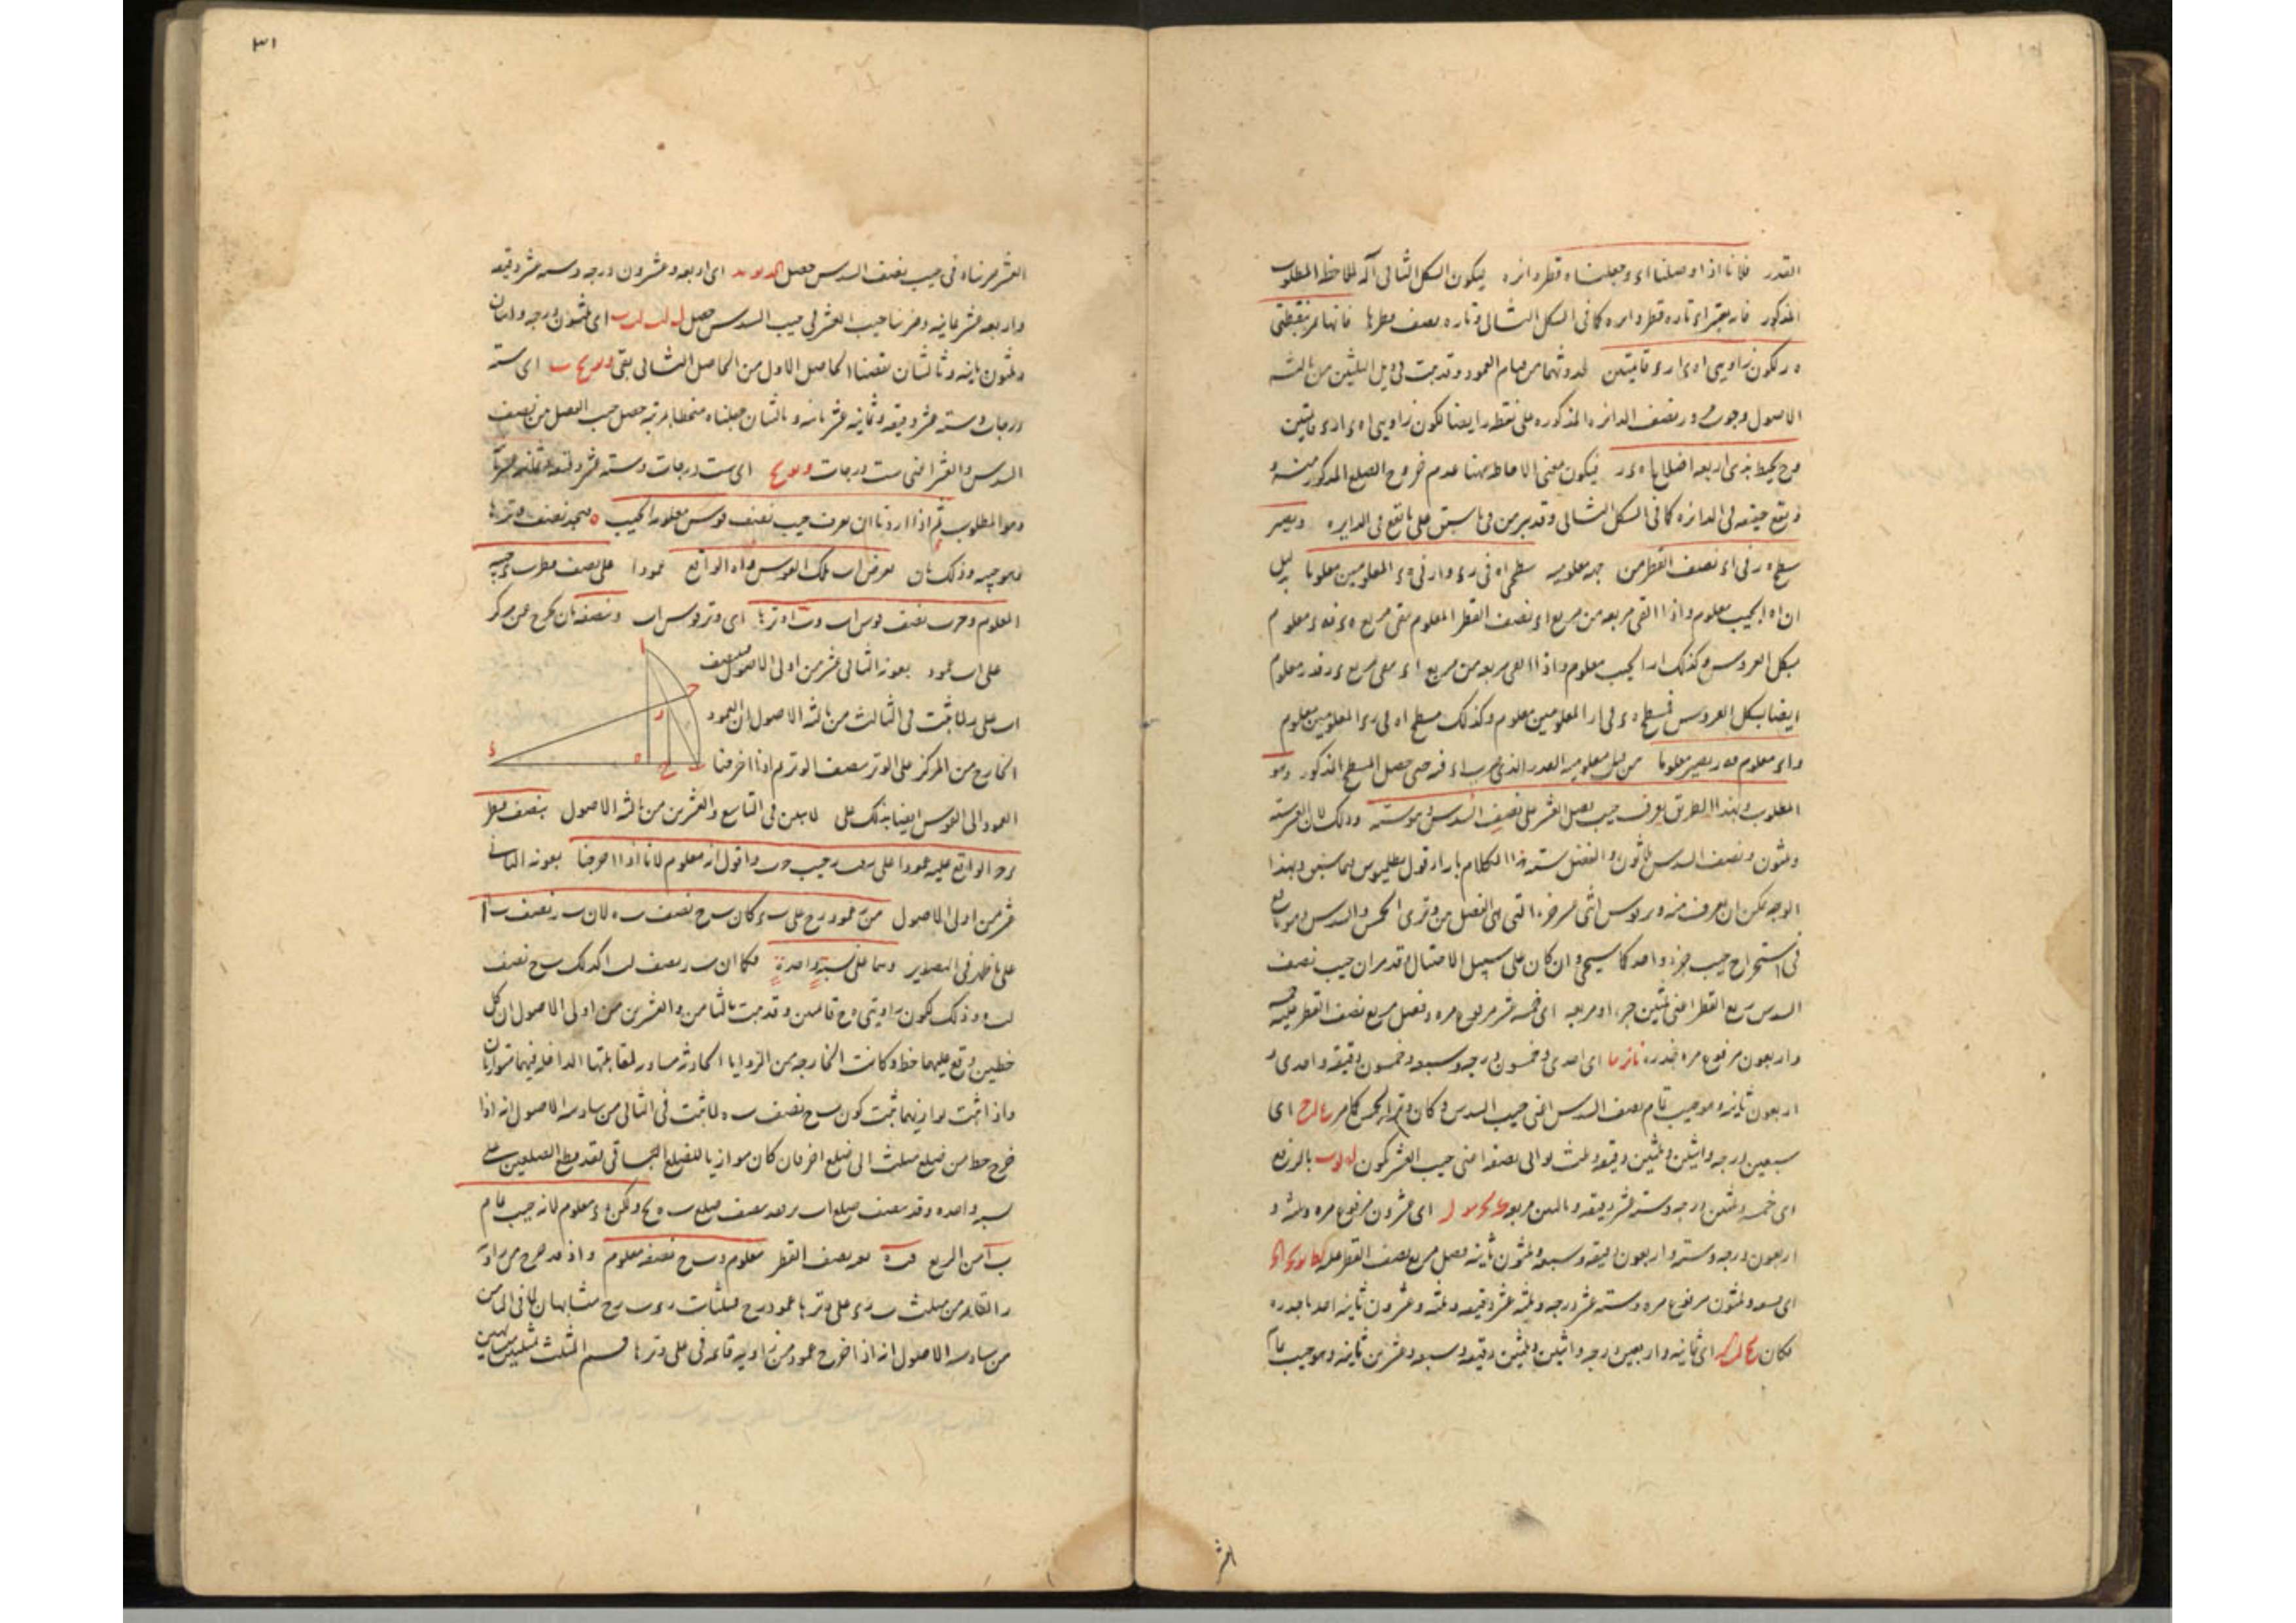 القدر فلانا اذا وصلنا اء وجعلناه قطر دائرة ليكون الشكل الثانى آلة للاحظ المطلوب
المذكور فان يعتبر اء تارة قطر دائرة كما فى الشكل الثانى وتارة نصف قطرها فانها تمر بنقطتى
ه ر لكون زاويتى اه ء ا ر ء قائمتين لحدوثهما من قيام العمود وقد ثبت فى ذيل الثلثين من ثالثة
الاصول وجوب مرور نصف الدائرة المذكورة على نقطة ر ايضا لكون زاويتى اه ء ا ر ء قائمتين
فح يحيط بذى اربعة اضلاع اه ء ر فيكون معنى الاحاطة هنا عدم خروج الضلع المذكور منه و
ويقع جميعه فى الدائرة كما فى الشكل الثانى وقد برهن فى ما سبق على ما يقع فى الدايرة ويصير
سطح ه ر فى اء نصف القطر من جهة معلومية سطحى اه فى ر ء و ا ر فى ه ء المعلومين معلوما بدليل
ان اه الجيب معلوم واذا القى مربعه من مربع اء نصف القطر المعلوم بقى مربع ه ء فه ء معلوم
بشكل العروس وكذلك ا ر الجيب معلوم واذا القى مربعه من مربع اء بقى مربع ء ر فء ر معلوم
ايضا بشكل العروس فسطح ه ء فى ا ر المعلومين معلوم وكذلك مسطح اه فى ر ء المعلومين معلوم
و اء معلوم فه ر يصير معلوما من قبل معلومية القدر الذى ضرب اء فيه حتى حصل المسطح المذكور وهو
المطلوب وبهذا الطريق يعرف جيب فضل العشر على نصف السدس وهو ستة وذلك لان العشر ستة
وثلثون ونصف السدس ثلثون والفضل ستة هذا الكلام بازاء قول بطليموس فيما سبق وبهذا
الوجه يمكن ان يعرف منه وتر قوس اثنى عشر جزءا التى هى الفضل من وترى الخمس والسدس وهو نافع
فى استخراج جيب جزء واحد كما سيجئ وان كان على سبيل الاحتيال وقد مر ان جيب نصف
السدس ربع القطر اعنى ثلثين جزءا ومربعه اى خمسة عشر مرفوع مرة وفضل مربع نصف القطر عليه خمسة
واربعون مرفوع مرة فجذره نا نز ما اى احدى وخمسون درجة وسبعة وخمسون دقيقة واحدى و
اربعون ثانية وهو جيب تمام نصف السدس اعنى جيب السدس وكان وتر الخمس كما مر ع لب ج اى
سبعين درجة واثنين وثلثين دقيقة وثلث ثوانى نصفه اعنى جيب العشر يكون له يو ب بالرفع
اى خمسة وثلثين درجة وستة عشر دقيقة وثانيتين مربعه ك مج مو لز اى عشرون مرفوع مرة وثلثة و
اربعون درجة وستة واربعون دقيقة وسبعة وثلثون ثانية فضل مربع نصف القطر عليه لط يو يج كج
اى تسعة وثلثون مرفوع مرة وستة عشر درجة وثلثة عشر دقيقة وثلثة وعشرون ثانية اخذنا جذره
فكان مح لب كز اى ثمانية واربعين درجة واثنين وثلثين دقيقة وسبعة وعشرين ثانية وهو جيب تمام
العشر
٣١
العشر ضربناه فى جيب نصف السدس حصل كد يو يد اى اربعة وعشرون درجة وستة عشر دقيقة
واربعة عشر ثانية وضربنا جيب العشر فى جيب السدس حصل ل لب لب ب اى ثلثون درجة واثنان
وثلثون ثانية وثالثتان نقصنا الحاصل الاول من الحاصل الثانى بقى و يو يح ب اى ستة
درجات وستة عشر دقيقة وثمانية عشر ثانية وثالثتان جعلناه منحطا مرتبة حصل جيب الفضل من نصف
السدس والعشر اعنى ست درجات و يو يح اى ست درجات وستة عشر دقيقة وثمانية عشر ثانية
وهو المطلوب ثم اذا اردنا ان نعرف جيب نصف قوس معلومة الجيب فنجد نصف وترها
فهو جيبه وذلك بان نفرض ا ب تلك القوس و اه الواقع عمودا على نصف قطر ب ء جيبه
المعلوم و ح ب نصف قوس ا ب و ب ا وترها اى وتر قوس ا ب وننصفه بان نخرج عن مركز
على ا ب عمود بعونة الثانى عشر من اولى الاصول فينصف
ا ب على ر لما ثبت فى الثالث من ثالثة الاصول ان العمود
الخارج من المركز على الوتر ينصف الوتر ثم اذا اخرجنا
ا ح ر ء ه ح ب
العمود الى القوس ايضا بذلك على ما تبين فى التاسع والعشرين من ثالثة الاصول بنصف قطر
ء ح الواقع عليه عمودا على ر فب ر جيب ح ب واقول انه معلوم لانا اذا اخرجنا بعونة الثانى
عشر من اولى الاصول من ر عمود ر ح على ب ء كان ب ح نصف ب ه لان ب ر نصف ب ا
على ما ظهر فى التصوير وهما على نسبة واحدة فكما ان ب ر نصف ب ا كذلك ب ح نصف
ب ه وذلك لكون زاويتى ه ح قائمتين وقد ثبت بالثامن والعشرين من اولى الاصول ان كل
خطين وقع عليهما خط وكانت الخارجة من الزوايا الحادثة مساوية لمقابلتها الداخلة فيهما متوازيان
واذا ثبت توازيهما ثبت كون ب ح نصف ب ه لما ثبت فى الثانى من سادسة الاصول انه اذا
خرج خط من ضلع مثلث الى ضلع اخر فان كان موازيا للضلع الباقى فقد قطع الضلعين على
نسبة واحدة وقد نصف ضلع ا ب بر فقد نصف ضلع ب ه بح ولكن ه ء معلوم لانه جيب تمام
ب ا من الربع فب ه تمه نصف القطر معلوم وب ح نصفه معلوم واذ قد خرج من زاوية
ر القائمة من مثلث ب ر ء على وترها عمود ر ح فمثلثات ر ء ب ر ح متشابهان لما فى الثامن
من سادسة الاصول انه اذا خرج عمود من زاوية قائمة فى على وترها قسم المثلث بمثلثين متشابهين